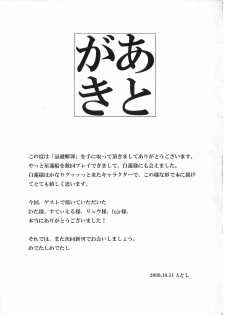 あとがき
この度は「昼避断罪」を手に取って頂きましてありがとうございます。
やっと星蓮船を数回プレイできまして、白蓮様にも会えました。
白蓮様はかなりグッッっと来たキャラクターで、この様な形で本に描けて
とても嬉しく思います。
今回、ゲストで描いていただいた
わた様、すてぃえる様、リュウ様、fujy様、
本当にありがとうございました!
それでは、また次回新刊でお会いしましょう。
めでたしめでたし
2009.10.11 Aとし